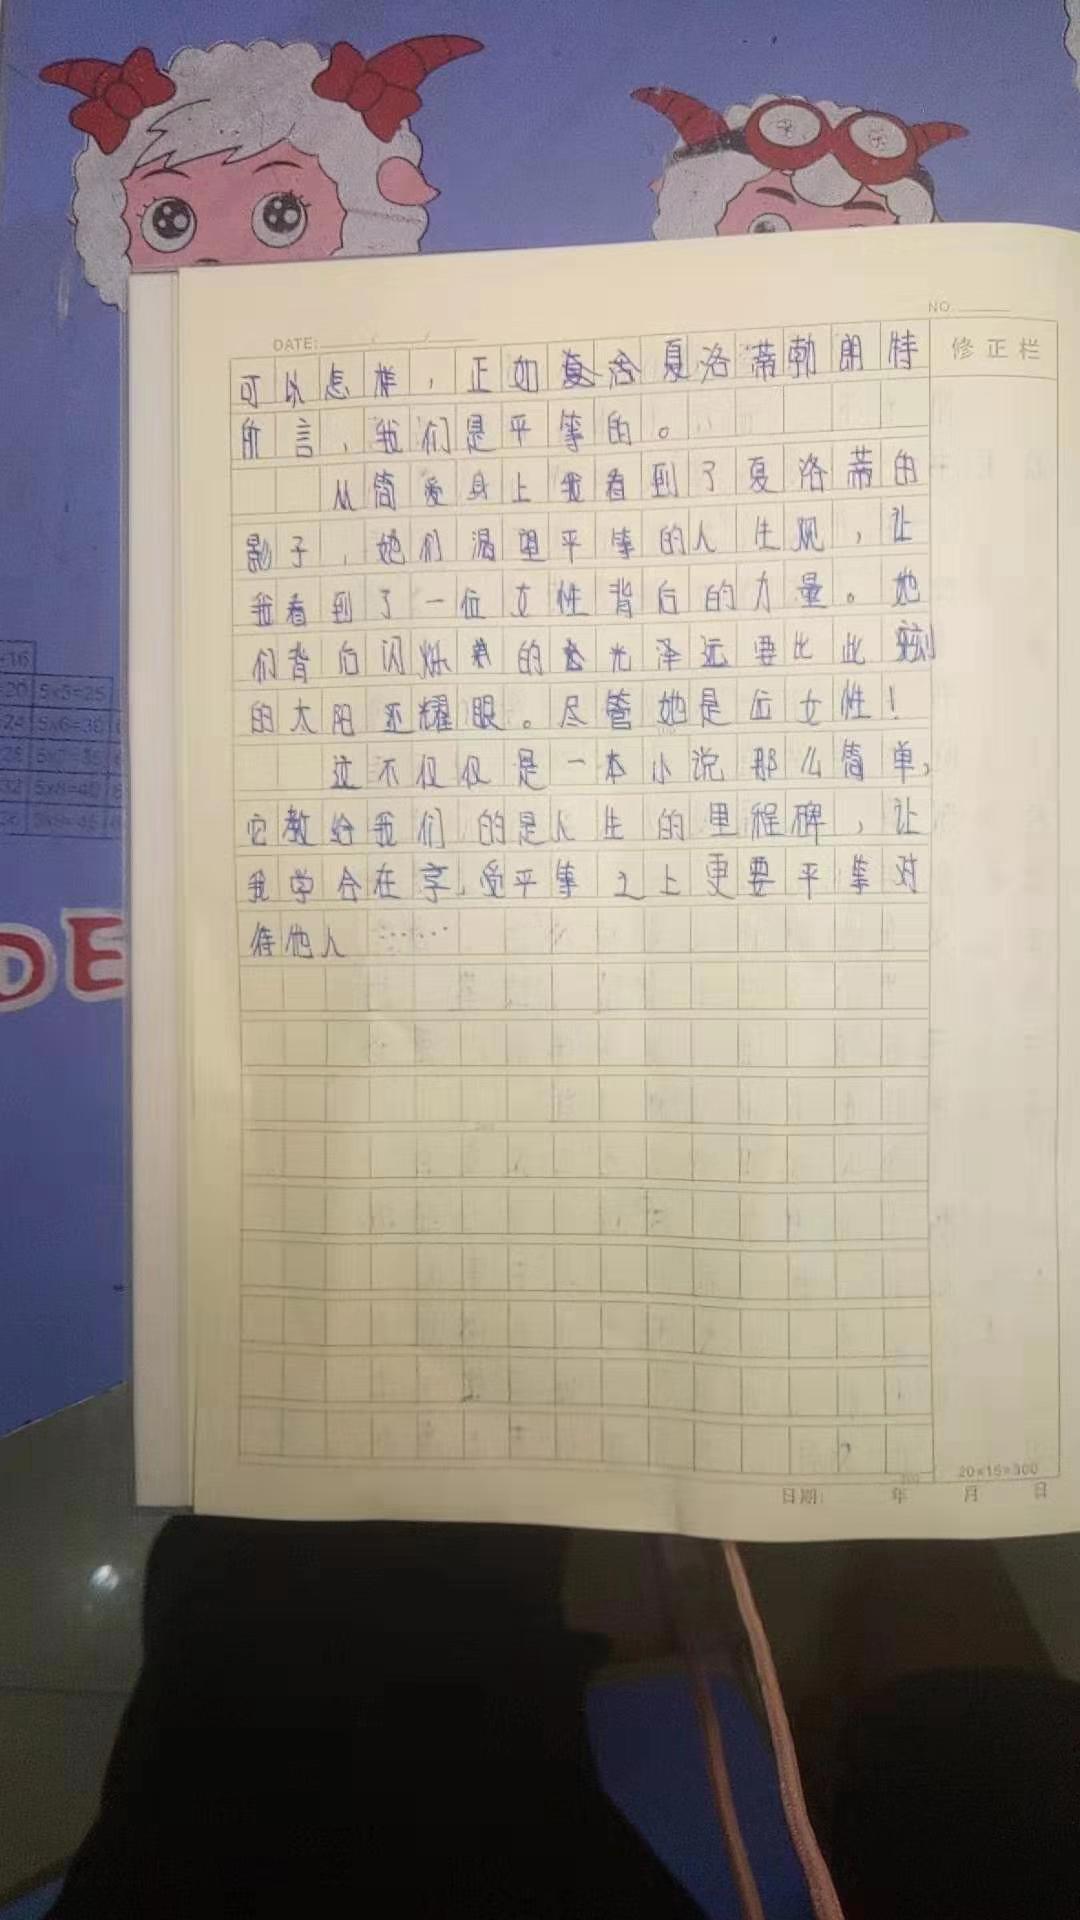 NO.
DATE: / /
修正栏
可以怎样，正如夏洛蒂勃朗特
所言，我们是平等的。
从简爱身上我看到了夏洛蒂的
影子，她们渴望平等的人生观，让
我看到了一位女性背后的力量。她
们背后闪烁的光泽远要比此刻
的太阳还耀眼。尽管她是位女性！
这不仅仅是一本小说那么简单，
它教给我们的是人生的里程碑，让
我学会在享受平等之上更要平等对
待他人……
20×15=300
日期： 年 月 日
5x5=25
5x6=30
DE